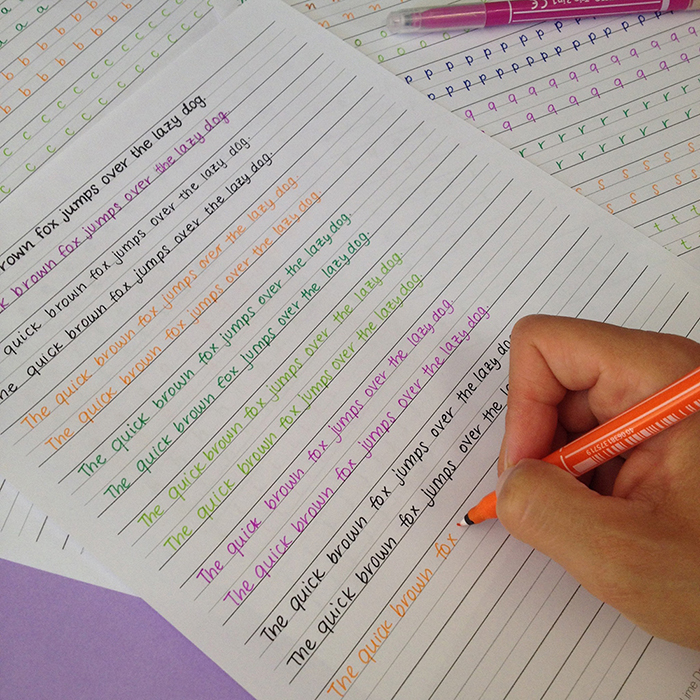 rown fox jumps over the lazy dog.
k brown fox jumps over the lazy dog.
quick brown fox jumps over the lazy dog.
he quick brown fox jumps over the lazy dog.
The quick brown fox jumps over the lazy dog.
The quick brown fox jumps over the lazy dog.
The quick brown fox jumps over the lazy dog.
The quick brown fox jumps over the lazy dog.
The quick brown fox jumps over the lazy dog.
The quick brown fox jumps over the lazy dog.
The quick brown fox jumps over the lazy dog.
The quick brown fox jumps over the lazy dog.
The quick brown fox jumps over the lazy do
The quick brown fox jumps over the
The quick brown fox
a a a
b b b b b b
b b b b b b
c c c c c c c c c
c c c c c c c c c
p p p p p p p p p p p p
p p p p p p p p p p p p
q q q q q q q q q q q
q q q q q q q q q q
r r r r r r r r
r r r r r r r
s s s s s
s s s s s
t t t
t t
4006381375719